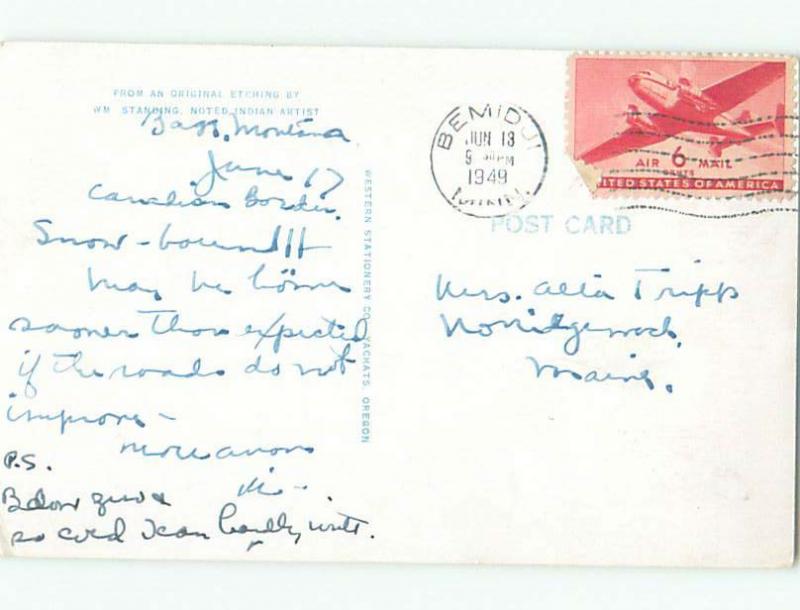 FROM AN ORIGINAL ETCHING BY
WM STANDING, NOTED INDIAN ARTIST
Montana
June 17
Canadian Border.
Snow-bound!!
May be home
sooner than expected
if the roads do not
improve -
more anon
P.S.
Below zero &
so cold I can hardly write.
WESTERN STATIONERY CO. YACHATS, OREGON
BEMIDJI
JUN 13
9 PM
1949
MINN.
AIR 6 MAIL
CENTS
UNITED STATES OF AMERICA
POST CARD
Mrs. Alta Tripp
Norridgewock,
Maine.